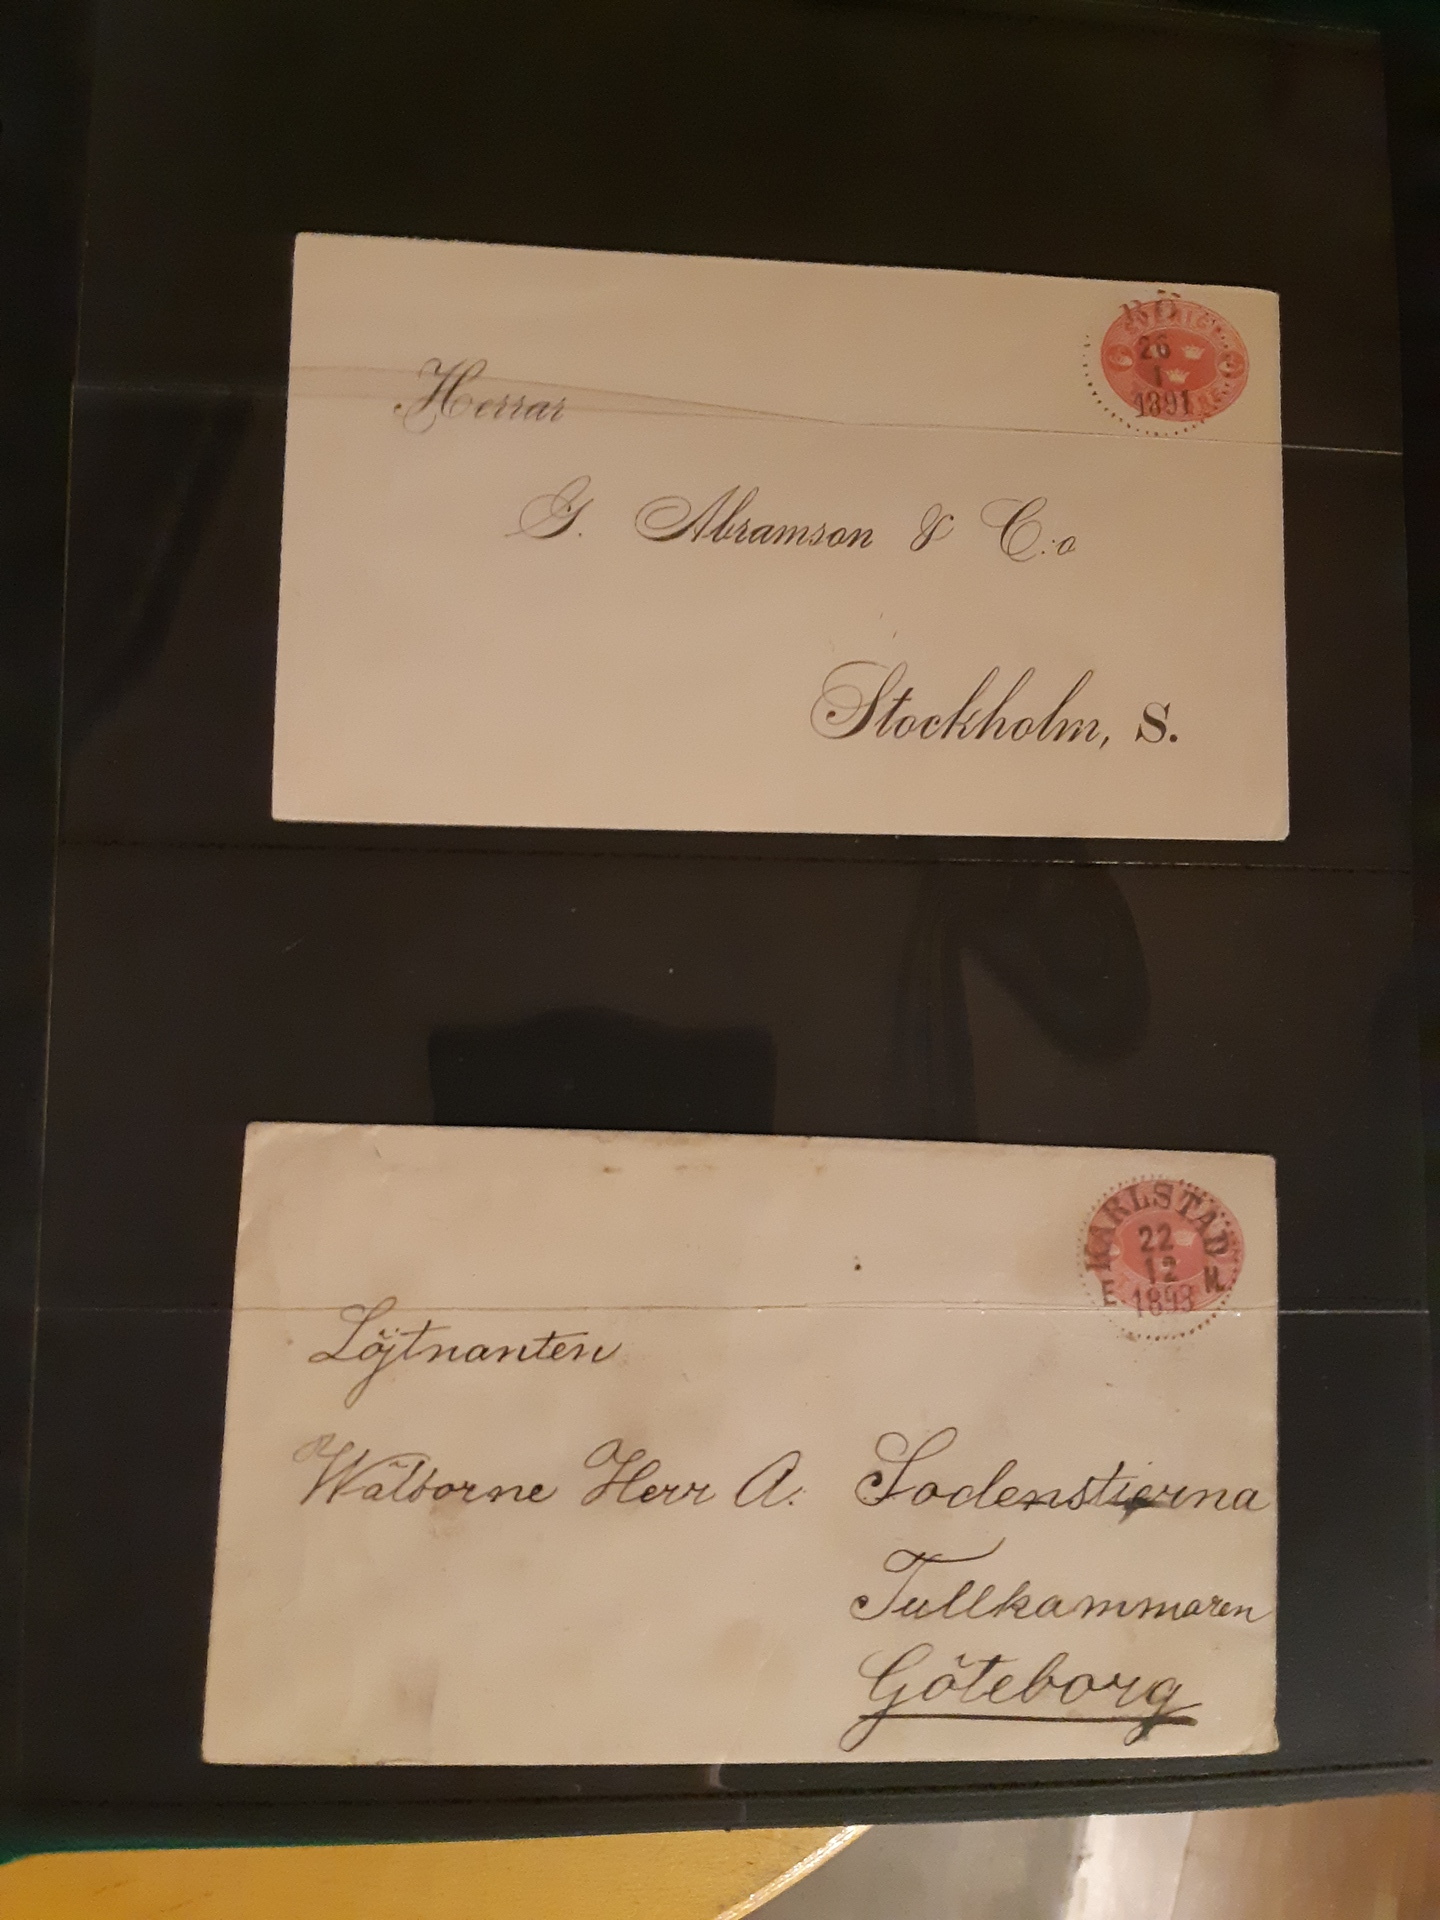 26
1
1891
Herrar
G. Abramson & C:o
Stockholm, S.
KARLSTAD
22
12
1893
Löjtnanten
Wälborne Herr A. Sodenstierna
Tullkammaren
Göteborg